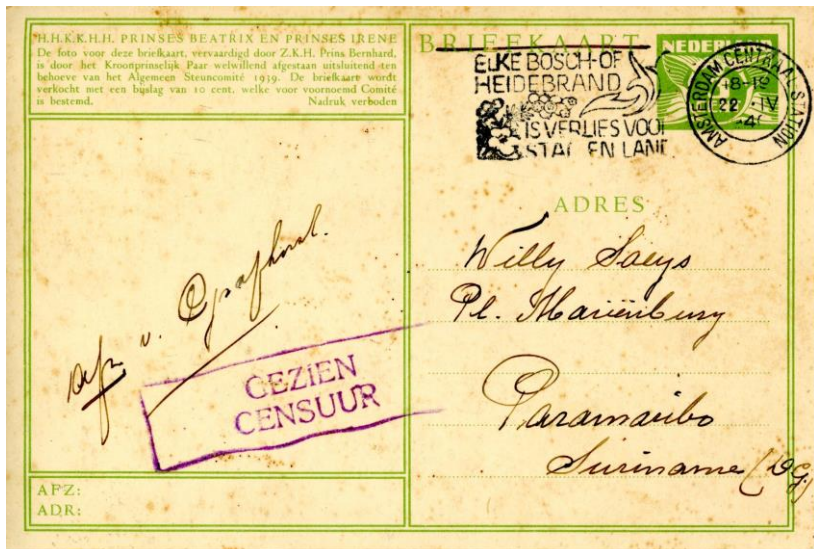 H.H.K.K.H.H. PRINSES BEATRIX EN PRINSES IRENE
De foto voor deze briefkaart, vervaardigd door Z.K.H. Prins Bernhard,
is door het Kroonprinselijk Paar welwillend afgestaan uitsluitend ten
behoeve van het Algemeen Steuncomité 1939. De briefkaart wordt
verkocht met een bijslag van 10 cent, welke voor voornoemd Comité
is bestemd. Nadruk verboden
BRIEFKAART
NEDERLAND
ELKE BOSCH-OF
HEIDEBRAND
IS VERLIES VOOR
STAD EN LAND
AMSTERDAM CENTRAAL STATION
18-19
22 IV
40
ADRES
Willy Saeys
Pl. Mariënburg
Paramaribo
Suriname (D.G.)
Afz. v.
GEZIEN
CENSUUR
AFZ:
ADR: